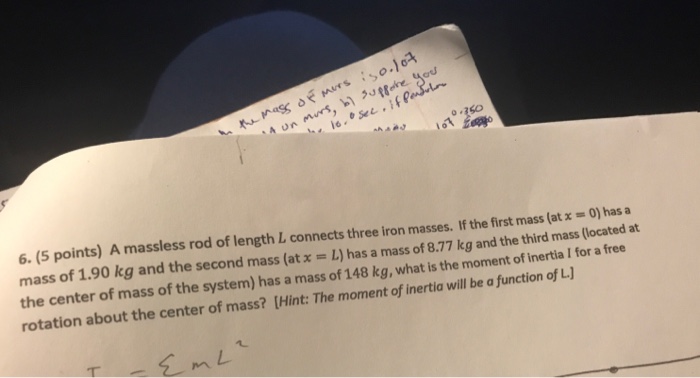 the mass of Mars is 0.107
on Mars, b) suppose you
10.0 sec. if Pendulum
0.380
107
6. (5 points) A massless rod of length L connects three iron masses. If the first mass (at x = 0) has a
mass of 1.90 kg and the second mass (at x = L) has a mass of 8.77 kg and the third mass (located at
the center of mass of the system) has a mass of 148 kg, what is the moment of inertia I for a free
rotation about the center of mass? [Hint: The moment of inertia will be a function of L.]
I = Σ m L²